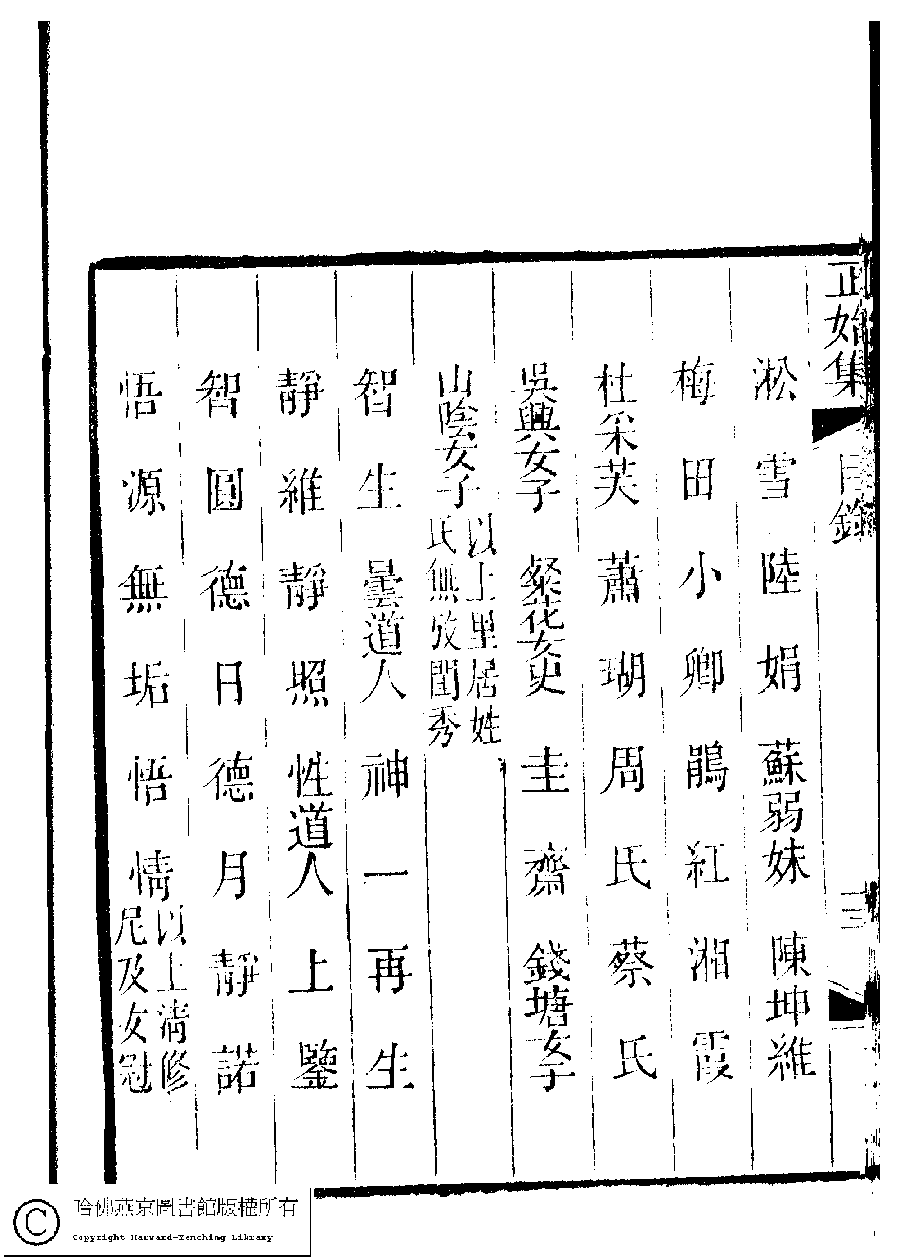 正始集 目錄 三
淞雪 陸娟 蘇弱妹 陳坤維
梅田 小卿 鵑紅 湘霞
杜采芙 蕭瑚 周氏 蔡氏
吳興女子 粲花女史 圭齋 錢塘女子
山陰女子 以上里居姓氏無攷閨秀
智生 曇道人 神一 再生
靜維 靜照 性道人 上鑒
智圓 德日 德月 靜諾
悟源 無垢 悟情 以上清修尼及女冠
哈佛燕京圖書館版權所有
Copyright Harvard-Yenching Library